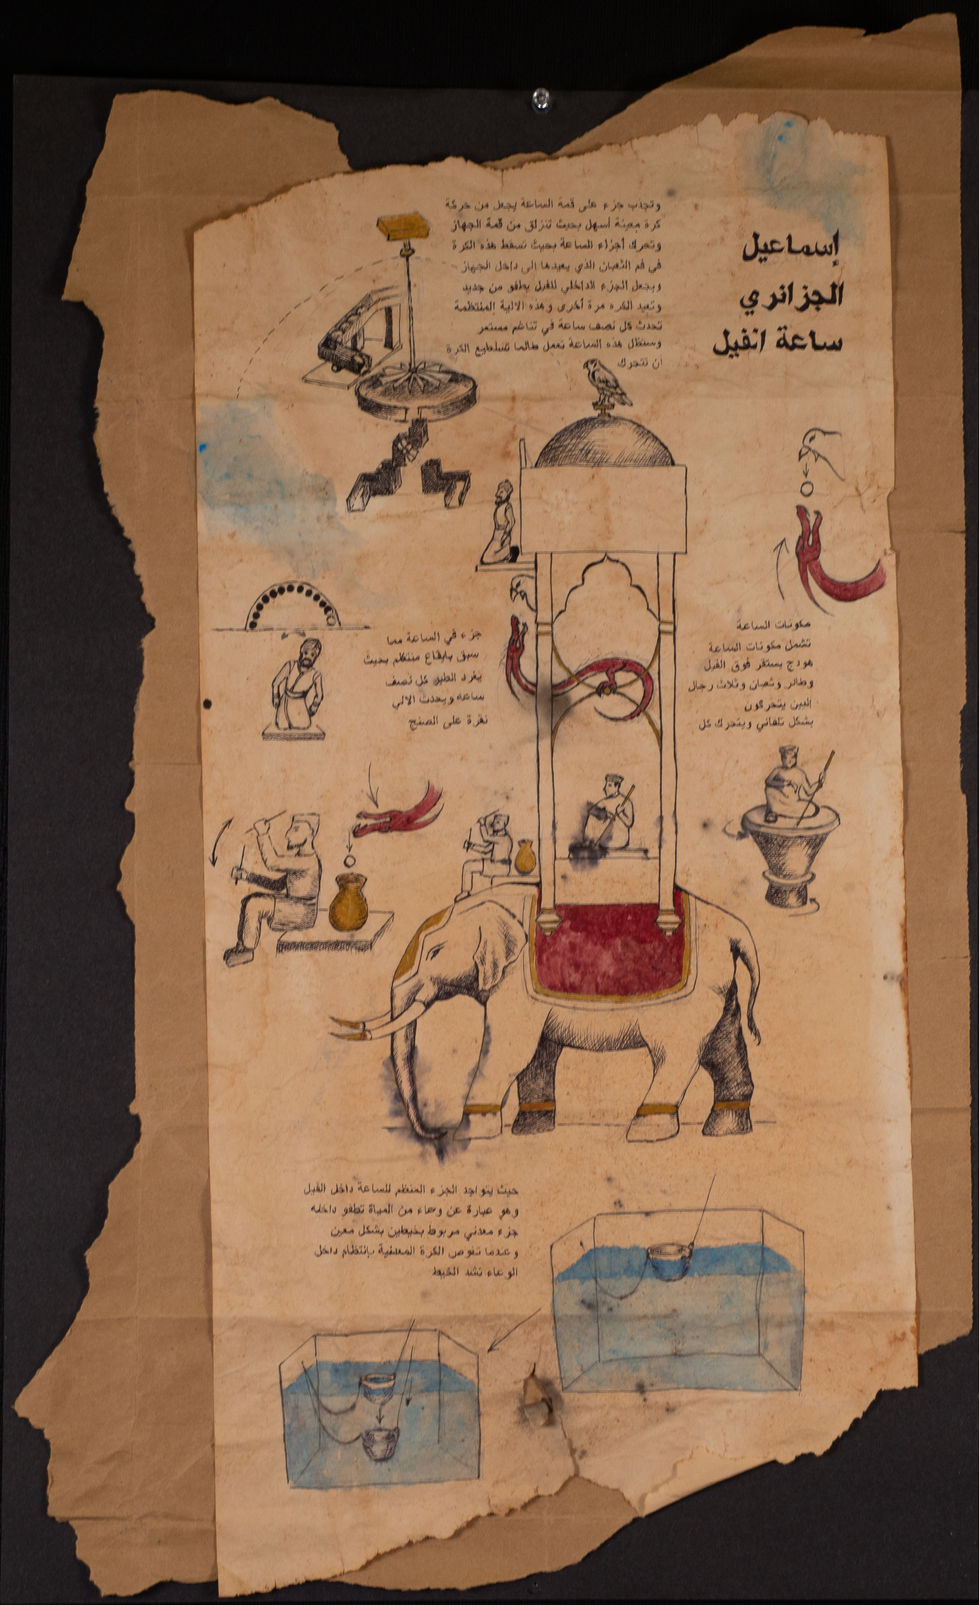 إسماعيل
الجزائري
ساعة انفيل
وتجذب جزء على قمة الساعة يجعل من حركة
كرة معينة أسهل بحيث تنزلق من قمة الجهاز
وتحرك أجزاء الساعة بحيث تسقط هذه الكرة
في فم الثعبان الذي يعيدها إلى داخل الجهاز
ويجعل الجزء الداخلي للفيل يطفو من جديد
وتعيد الكره مرة أخرى وهذه الالية المنتظمة
تحدث كل نصف ساعة في تناغم مستمر
وستظل هذه الساعة تعمل طالما تستطيع الكرة
ان تتحرك
مكونات الساعة
تشمل مكونات الساعة
هودج يستقر فوق الفيل
وطائر وثعبان وثلاث رجال
اليين يتحركون
بشكل تلقائي ويتحرك كل
جزء في الساعة مما
سبق بايقاع منتظم بحيث
يغرد الطير كل نصف
ساعة ويحدث الالي
نقرة على الصنج
حيث يتواجد الجزء المنظم للساعة داخل الفيل
وهو عبارة عن وعاء من المياة تطفو داخله
جزء معدني مربوط بخيطين بشكل معين
وعندما تغوص الكرة المعدنية بإنتظام داخل
الوعاء تشد الخيط